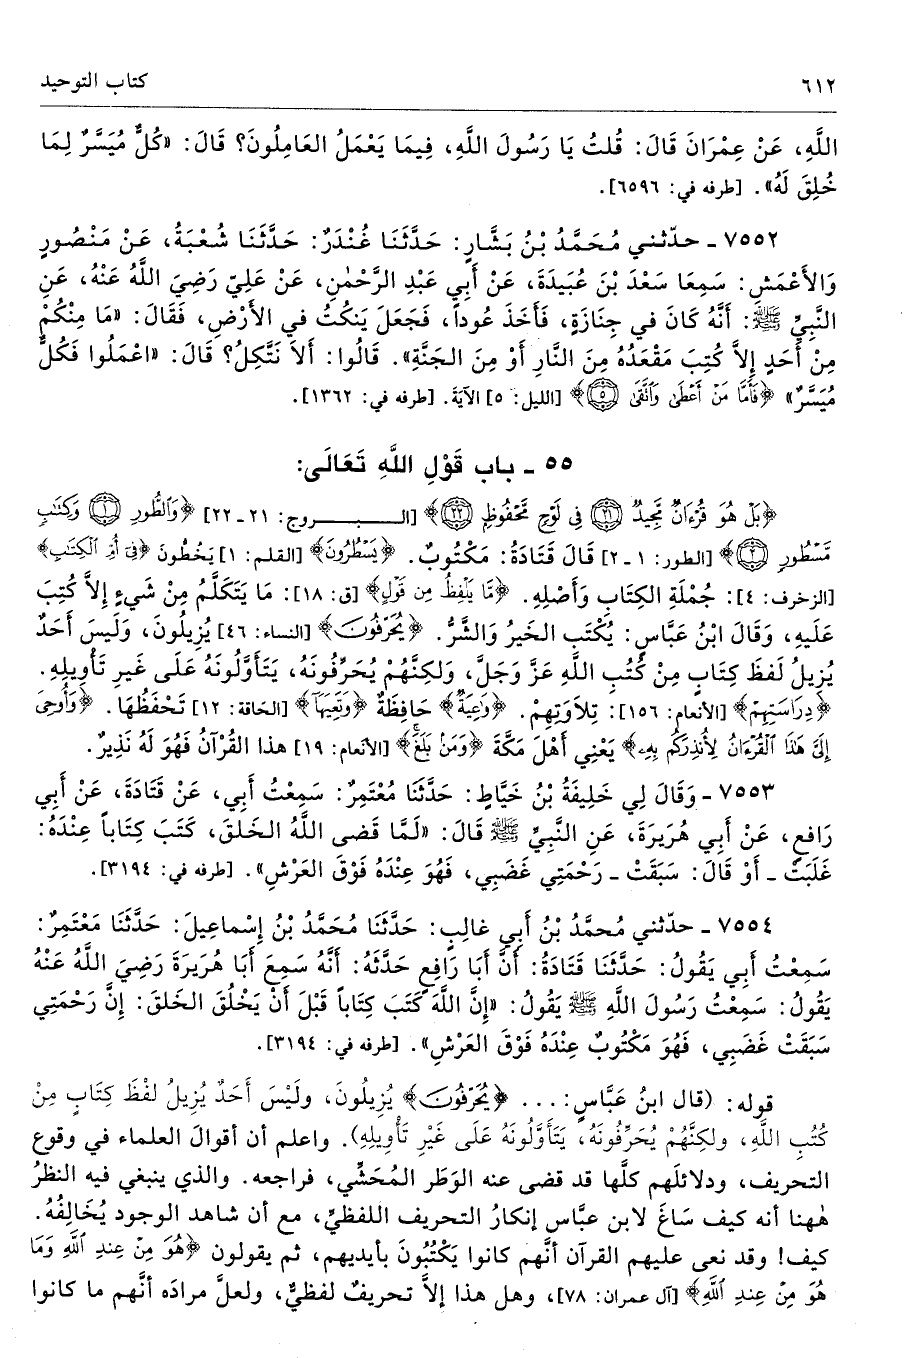 ٦١٢ كتاب التوحيد
اللَّهِ، عَنْ عِمْرَانَ قَالَ: قُلتُ يَا رَسُولَ اللَّهِ، فِيمَا يَعْمَلُ العَامِلُونَ؟ قَالَ: «كُلٌّ مُيَسَّرٌ لِمَا
خُلِقَ لَهُ». [طرفه في: ٦٥٩٦].
٧٥٥٢ ـ حدّثني مُحَمَّدُ بْنُ بَشَّارٍ: حَدَّثَنَا غُنْدَرٌ: حَدَّثَنَا شُعْبَةُ، عَنْ مَنْصُورٍ
وَالأَعْمَشِ: سَمِعَا سَعْدَ بْنَ عُبَيدَةَ، عَنْ أَبِي عَبْدِ الرَّحْمٰنِ، عَنْ عَلِيّ رَضِيَ اللَّهُ عَنْهُ، عَنِ
النَّبِيِّ ﷺ: أَنَّهُ كَانَ في جِنَازَةٍ، فَأَخَذَ عُوداً، فَجَعَلَ يَنكُتُ في الأَرْضِ، فَقَالَ: «مَا مِنْكُمْ
مِنْ أَحَدٍ إِلاَّ كُتِبَ مَقْعَدُهُ مِنَ النَّارِ أَوْ مِنَ الجَنَّةِ». قَالُوا: أَلاَ نَتَّكِلُ؟ قَالَ: «اعْمَلُوا فَكُلٌّ
مُيَسَّرٌ» ﴿فَأَمَّا مَنْ أَعْطَى وَاتَّقَى ٥﴾ [الليل: ٥] الآيَةَ. [طرفه في: ١٣٦٢].
٥٥ ـ باب قَوْلِ اللَّهِ تَعَالَى:
﴿بَلْ هُوَ قُرْءَانٌ مَّجِيدٌ ٢١ فِى لَوْحٍ مَّحْفُوظٍ ٢٢﴾ [البـــــروج: ٢١ـ٢٢] ﴿وَٱلطُّورِ ١ وَكِتَٰبٍ
مَّسْطُورٍ ٢﴾ [الطور: ١ـ٢] قَالَ قَتَادَةُ: مَكْتُوبٌ. ﴿يَسْطُرُونَ﴾ [القلم: ١] يَخُطُّونَ ﴿فِىٓ أُمِّ ٱلْكِتَٰبِ﴾
[الزخرف: ٤]: جُمْلَةِ الكِتَابِ وَأَصْلِهِ. ﴿مَّا يَلْفِظُ مِن قَوْلٍ﴾ [ق: ١٨]: مَا يَتَكَلَّمُ مِنْ شَيءٍ إِلاَّ كُتِبَ
عَلَيهِ، وَقَالَ ابْنُ عَبَّاسٍ: يُكْتَب الخَيرُ وَالشَّرُّ. ﴿يُحَرِّفُونَ﴾ [النساء: ٤٦] يُزِيلُونَ، وَلَيسَ أَحَدٌ
يُزِيلُ لَفظَ كِتَابٍ مِنْ كُتُبِ اللَّهِ عَزَّ وَجَلَّ، وَلكِنَّهُمْ يُحَرِّفُونَهُ، يَتَأَوَّلُونَهُ عَلَى غَيرِ تَأْوِيلِهِ.
﴿دِرَاسَتِهِمْ﴾ [الأنعام: ١٥٦]: تِلاَوَتِهِمْ. ﴿وَٰعِيَةٌ﴾ حَافِظَةٌ ﴿وَتَعِيَهَآ﴾ [الحاقة: ١٢] تَحْفَظُهَا. ﴿وَأُوحِىَ
إِلَىَّ هَٰذَا ٱلْقُرْءَانُ لِأُنذِرَكُم بِهِۦ﴾ يَعْنِي أَهْلَ مَكَّةَ ﴿وَمَنۢ بَلَغَ﴾ [الأنعام: ١٩] هذا القُرْآنُ فَهُوَ لَهُ نَذِيرٌ.
٧٥٥٣ ـ وَقَالَ لِي خَلِيفَةُ بْنُ خَيَّاطٍ: حَدَّثَنَا مُعْتَمِرٌ: سَمِعْتُ أَبِي، عَنْ قَتَادَةَ، عَنْ أَبِي
رَافِعٍ، عَنْ أَبِي هُرَيرَةَ، عَنِ النَّبِيِّ ﷺ قَالَ: «لَمَّا قَضى اللَّهُ الخَلقَ، كَتَبَ كِتَاباً عِنْدَهُ:
غَلَبَتْ ـ أَوْ قَالَ: سَبَقَتْ ـ رَحْمَتِي غَضَبِي، فَهُوَ عِنْدَهُ فَوْقَ العَرْشِ». [طرفه في: ٣١٩٤].
٧٥٥٤ ـ حدّثني مُحَمَّدُ بْنُ أَبِي غالِبٍ: حَدَّثَنَا مُحَمَّدُ بْنُ إِسْماعِيلَ: حَدَّثَنَا مُعْتَمِرٌ:
سَمِعْتُ أَبِي يَقُولُ: حَدَّثَنَا قَتَادَةُ: أَنَّ أَبَا رَافِعٍ حَدَّثَهُ: أَنَّهُ سَمِعَ أَبَا هُرَيرَةَ رَضِيَ اللَّهُ عَنْهُ
يَقُولُ: سَمِعْتُ رَسُولَ اللَّهِ ﷺ يَقُولُ: «إِنَّ اللَّهَ كَتَبَ كِتَاباً قَبْلَ أَنْ يَخْلُقَ الخَلقَ: إِنَّ رَحْمَتِي
سَبَقَتْ غَضَبِي، فَهُوَ مَكْتُوبٌ عِنْدَهُ فَوْقَ العَرْشِ». [طرفه في: ٣١٩٤].
قوله: (قال ابنُ عَبَّاسٍ: ... ﴿يُحَرِّفُونَ﴾ يُزِيلُونَ، ولَيْسَ أَحَدٌ يُزِيلُ لَفْظَ كِتَابٍ مِنْ
كُتُبِ اللَّهِ، ولكِنَّهُمْ يُحَرِّفُونَهُ، يَتَأَوَّلُونَهُ عَلَى غَيْرِ تَأْوِيلِهِ). واعلم أن أقوالَ العلماء في وقوع
التحريف، ودلائلَهم كلَّها قد قضى عنه الوَطَر المُحَشِّي، فراجعه. والذي ينبغي فيه النظرُ
هٰهنا أنه كيف سَاغَ لابن عبَّاس إنكارُ التحريف اللفظيِّ، مع أن شاهد الوجود يُخَالِفُهُ.
كيف! وقد نعى عليهم القرآن أنَّهم كانوا يَكْتُبُونَ بأيديهم، ثم يقولون ﴿هُوَ مِنْ عِندِ ٱللَّهِ وَمَا
هُوَ مِنْ عِندِ ٱللَّهِ﴾ [آل عمران: ٧٨]، وهل هذا إلاَّ تحريفٌ لفظيٌّ، ولعلَّ مرادَه أنَّهم ما كانوا